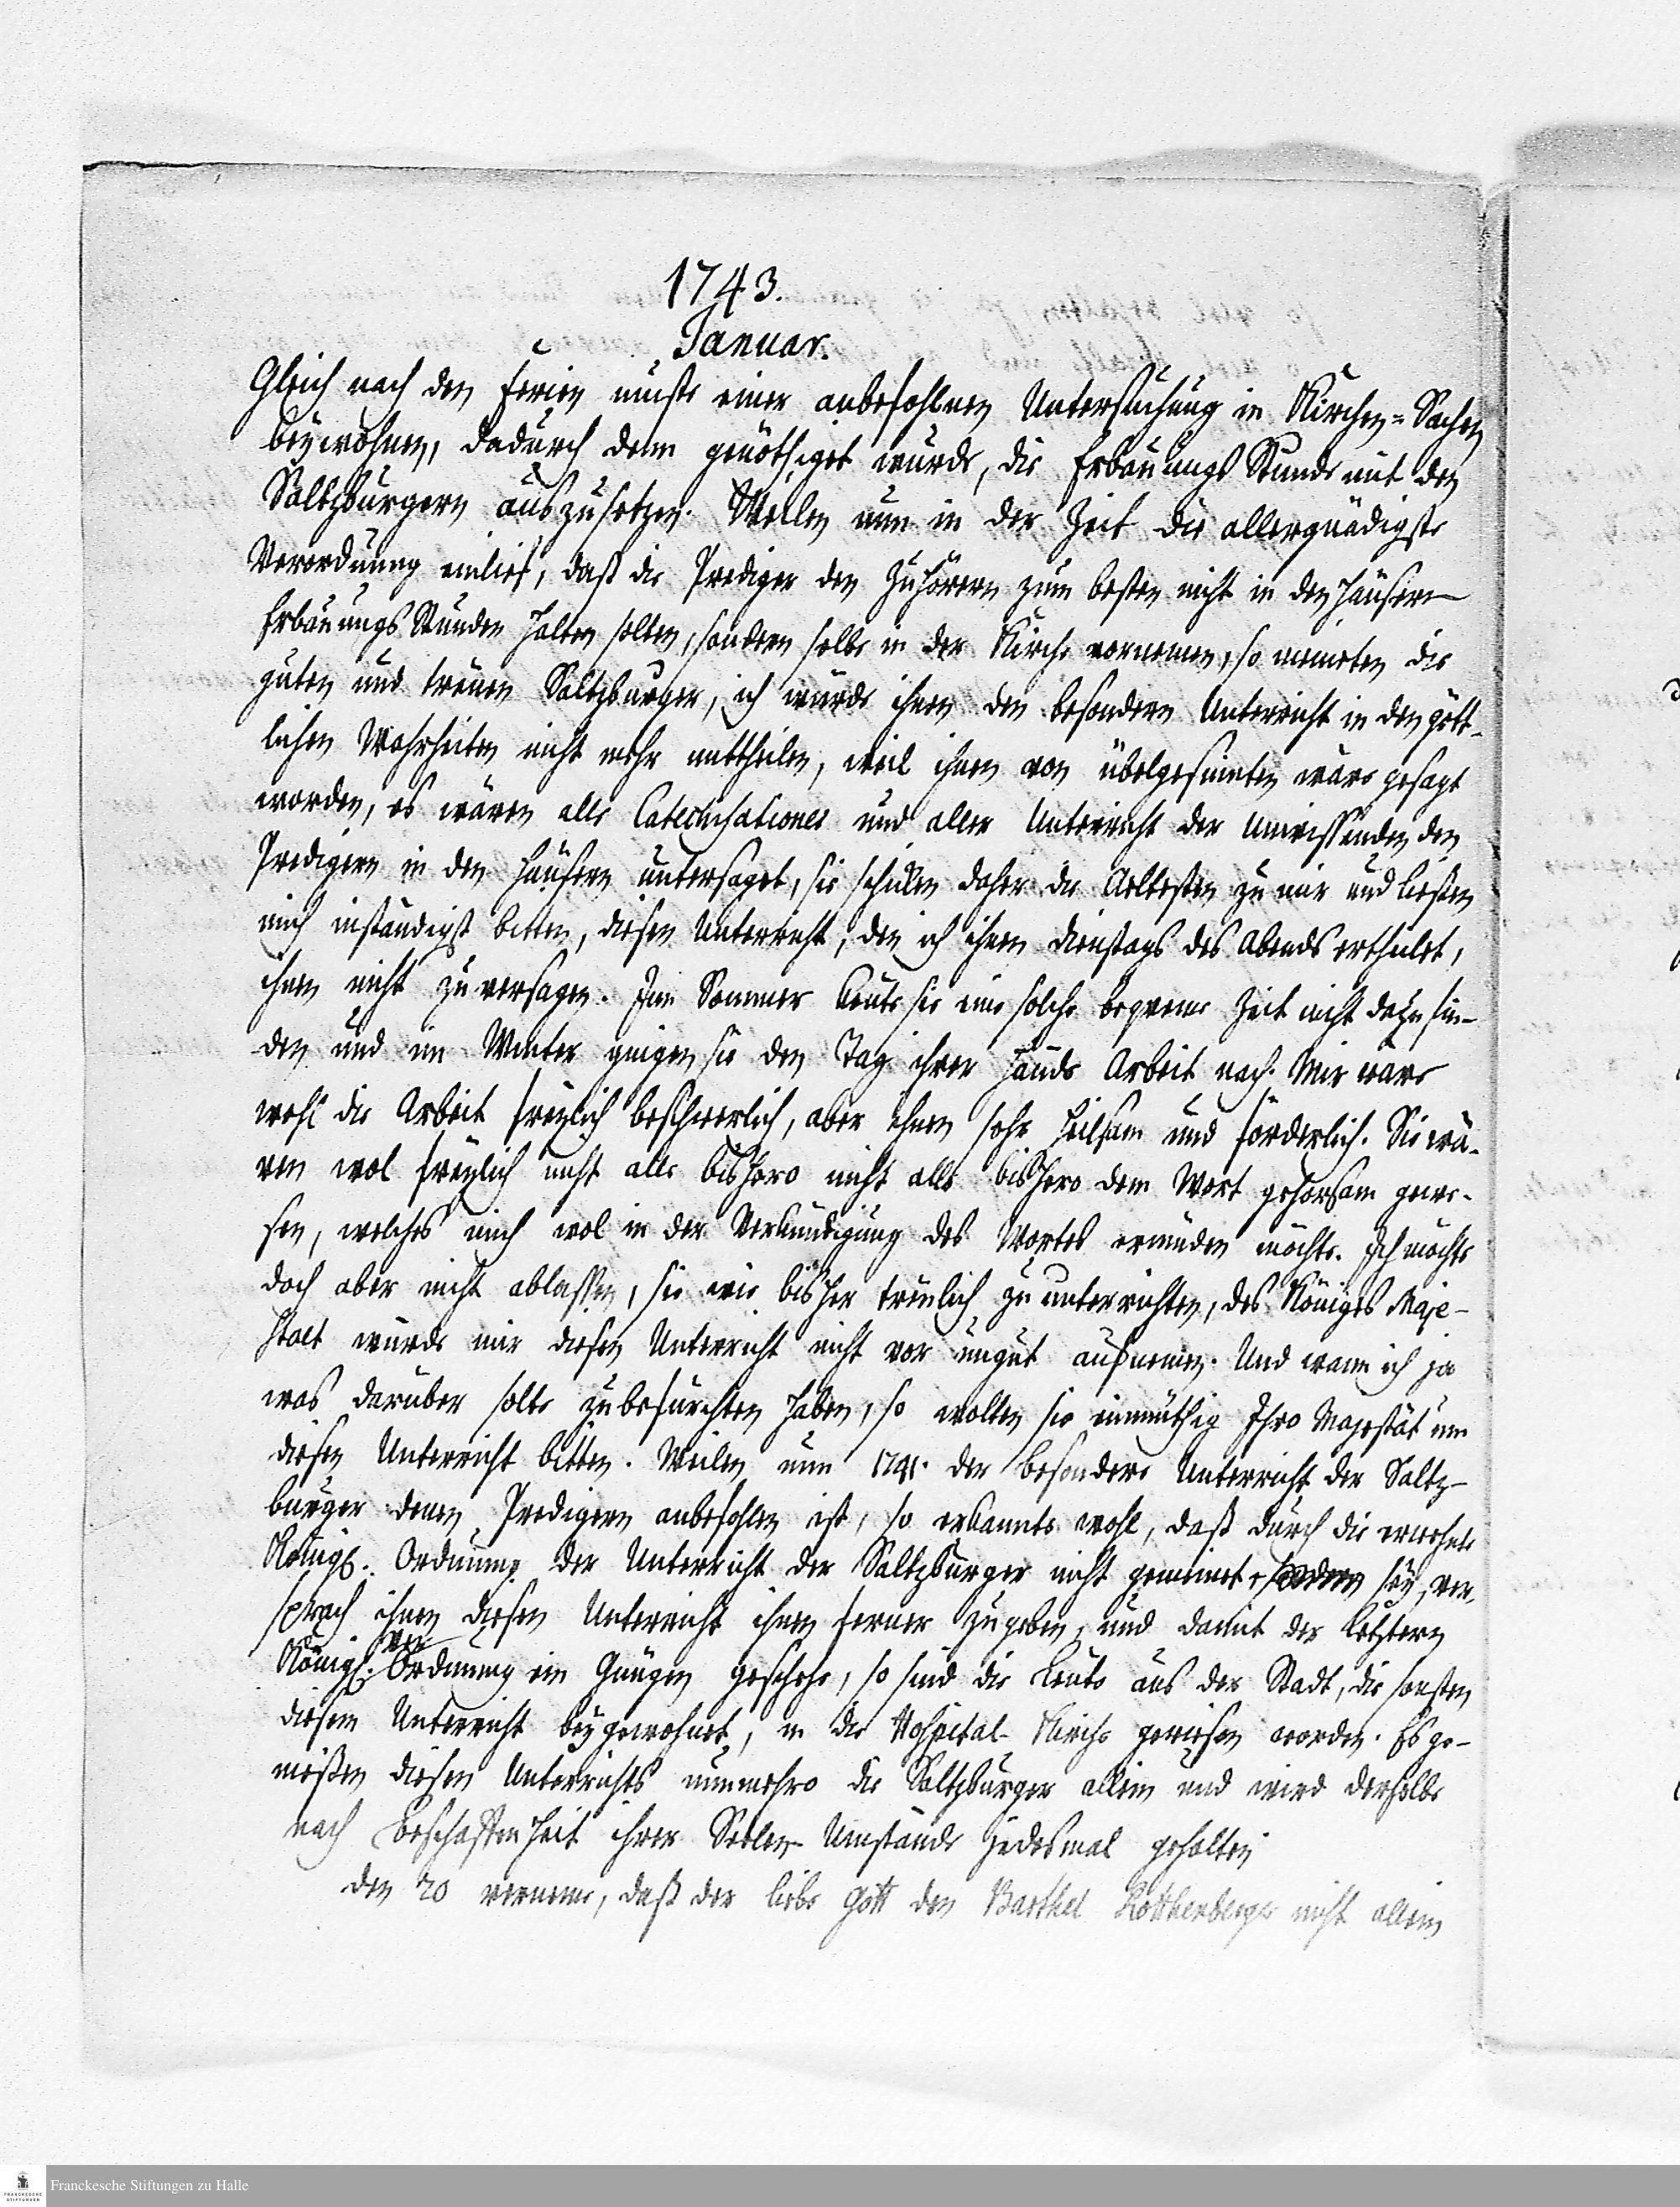 1743.
Januar.
Gleich nach den Ferien muste einer anbefohlnen Untersuchung in Kirchen=Sachen
beywohnen, dadurch denn genöthiget wurde, die Erbauungs Stunde mit den
Saltzburgern auszusetzen. Weilen nun in der Zeit die allergnädigste
Verordnung einlief, daß die Prediger den Zuhörern zum besten nicht in den Häusern
Erbauungs Stunden halten solten, sondern selbe in der Kirche vornemen, so meineten die
guten und treuen Saltzburger, ich würde ihnen den besondern Unterricht in den gött-
lichen Wahrheiten nicht mehr mittheilen, weil ihnen von übelgesinneten wäre gesagt
worden, es wären alle Catechisationes und aller Unterricht der Unwissenden den
Predigern in den Häusern untersaget, sie schicken daher die Aeltesten zu mir und ließen
mich inständigst bitten, diesen Unterricht, den ich ihnen Dienstags des Abends ertheilet,
ihnen nicht zu versagen. Im Sommer könte sie eine solche beqveme Zeit nicht dazu fin-
den und im Winter giengen sie den Tag ihrer Hände Arbeit nach. Mir wäre
wohl die Arbeit freylich beschwerlich, aber ihnen sehr heilsam und förderlich. Sie wä-
ren wol freylich nicht alle bishero nicht alle bishero dem Wort gehorsam gewe-
sen, welches mich wol in der Verkündigung des Wortes ermüden möchte. Ich möchte
doch aber nicht ablassen, sie wie bisher treulich zu unterrichten, des Königes Maje-
staet würde mir diesen Unterricht nicht vor ungut aufnemen. Und wann ich ja
was darüber solte zu befürchten haben, so wolten sie einmüthig Ihro Majestät um
diesen Unterricht bitten. Weilen nun 1741. der besondere Unterricht der Saltz-
burger denen Predigern anbefohlen ist, so erkannte wohl, daß durch die erwehnte
Königl. Ordnung der Unterricht der Saltzburger nicht gemeinet sey, ver-
sprach ihnen diesen Unterricht ihnen ferner zu geben, und damit der letztern
Königl. Verordnung ein Gnügen geschehe, so sind die Leute aus der Stadt, die sonsten
diesem Unterricht beygewohnet, in die Hospital-Kirche gewiesen worden. Es ge-
nießen diesen Unterrichts nunmehro die Saltzburger allein und wird derselbe
nach Beschaffenheit ihrer Seelen-Umstände jedesmal gehalten
den 20 verneme, daß der liebe Gott den Barthel Rotthenberger nicht allein
Franckesche Stiftungen zu Halle
FRANCKESCHE
STIFTUNGEN